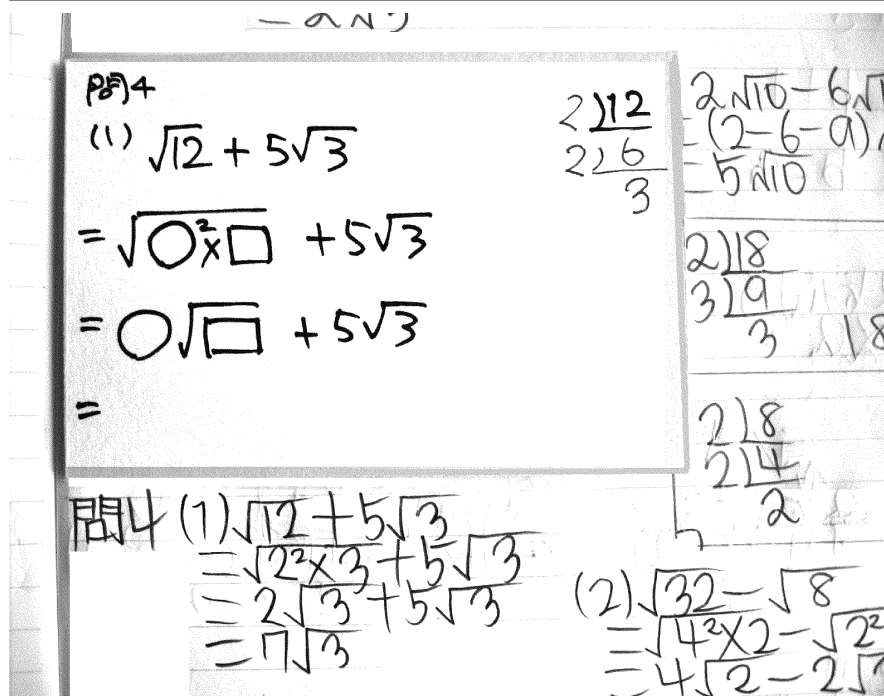 問4
(1) √12 + 5√3
= √○²×□ + 5√3
= ○√□ + 5√3
=
2)12
2)6
3
2√10-6√1
=(2-6-9)
=5√10
2)18
3)9
3
18
2)8
2)4
2
問4 (1)√12+5√3
=√2²×3+5√3
=2√3+5√3
=7√3
(2)√32-√8
=√4²×2-√2²
=4√2-2√